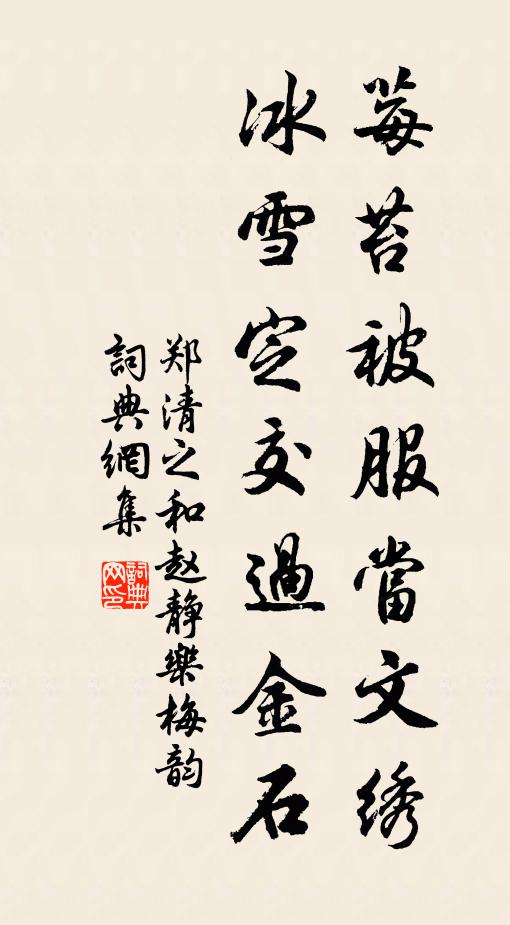 莓苔被服當文绣
冰雪定交過金石
郑清之和赵静樂梅韵
詞典網集
詞典网印